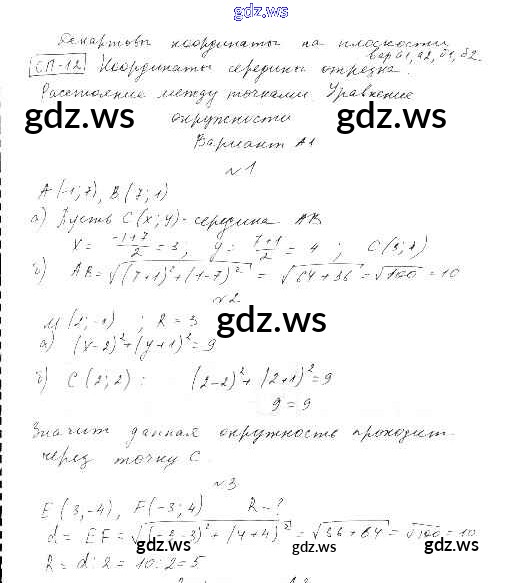 gdz.ws
Декартовы координаты на плоскости
вар а1, а2, б1, б2.
СП-12 Координаты середины отрезка.
Расстояние между точками. Уравнение
gdz.ws gdz.ws
окружности
Вариант А1
№1
A(-1; 7), B(7; 1)
а) Пусть C(x; y) - середина AB
x = (-1+7)/2 = 3; y = (7+1)/2 = 4; C(3; 4)
б) AB = √((7+1)²+(1-7)²) = √(64+36) = √100 = 10
№2
gdz.ws
M(2; -1); R = 3
а) (x-2)²+(y+1)²=9
б) C(2; 2): (2-2)²+(2+1)²=9
9 = 9
Значит данная окружность проходит
через точку C.
№3
E(3, -4), F(-3; 4) R-?
d = EF = √((-3-3)²+(4+4)²) = √(36+64) = √100 = 10
gdz.ws gdz.ws
R = d:2 = 10:2 = 5